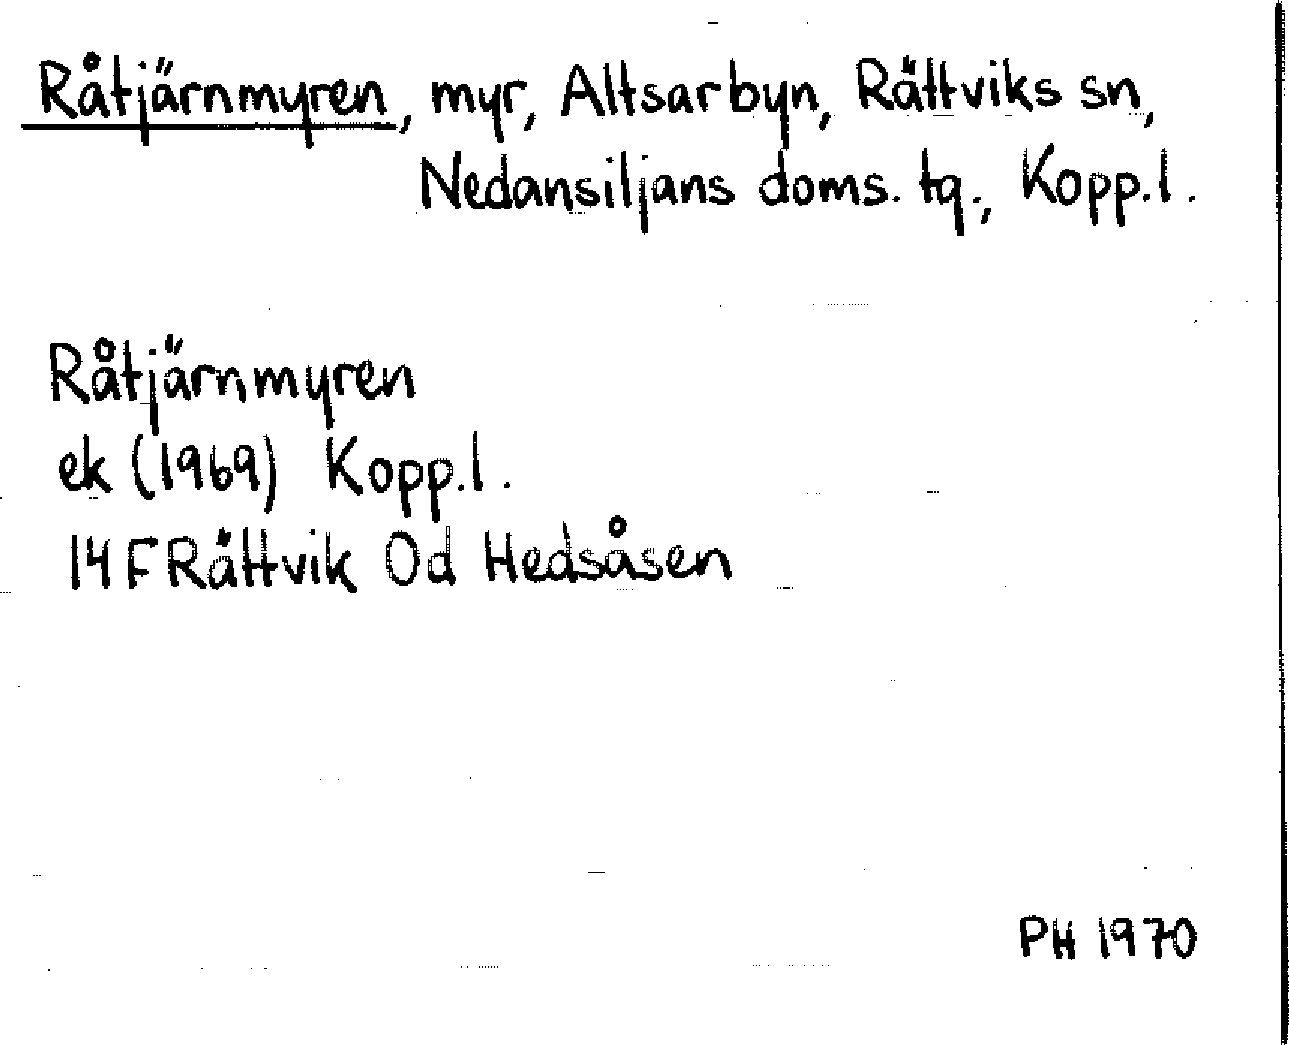 Råtjärnmyren, myr, Altsarbyn, Rättviks sn,
Nedansiljans doms. tg., Kopp.l.
Råtjärnmyren
ek (1969) Kopp.l.
14F Rättvik 0d Hedsåsen
PH 1970